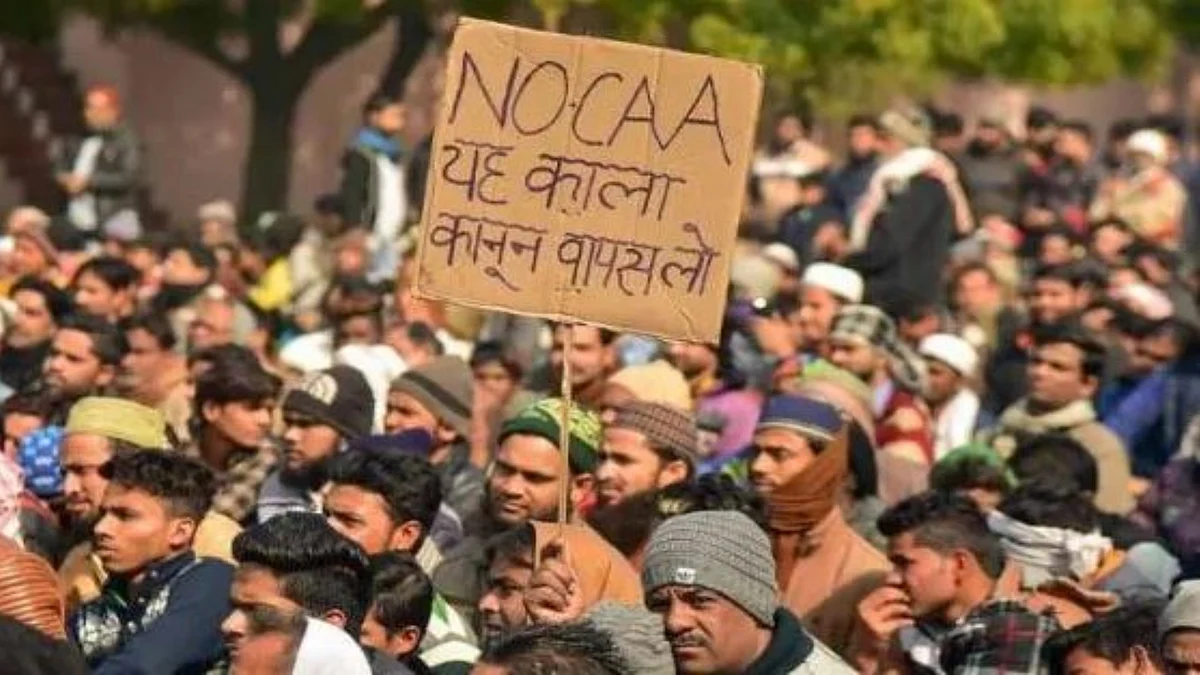 NO-CAA
यह काला
कानून वापस लो